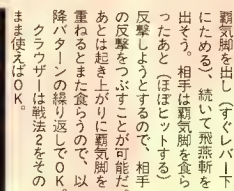 覇気脚を出し（すぐレバー下
にためる）、続いて飛燕斬を
出そう。相手は覇気脚を食ら
ったあと（ほぼヒットする）
反撃しようとするので、相手
の反撃をつぶすことが可能だ。
あとは起き上がりに覇気脚を
重ねるとまた食らうので、以
降パターンの繰り返しでOK。
クラウザーは戦法2をその
まま使えばOK。